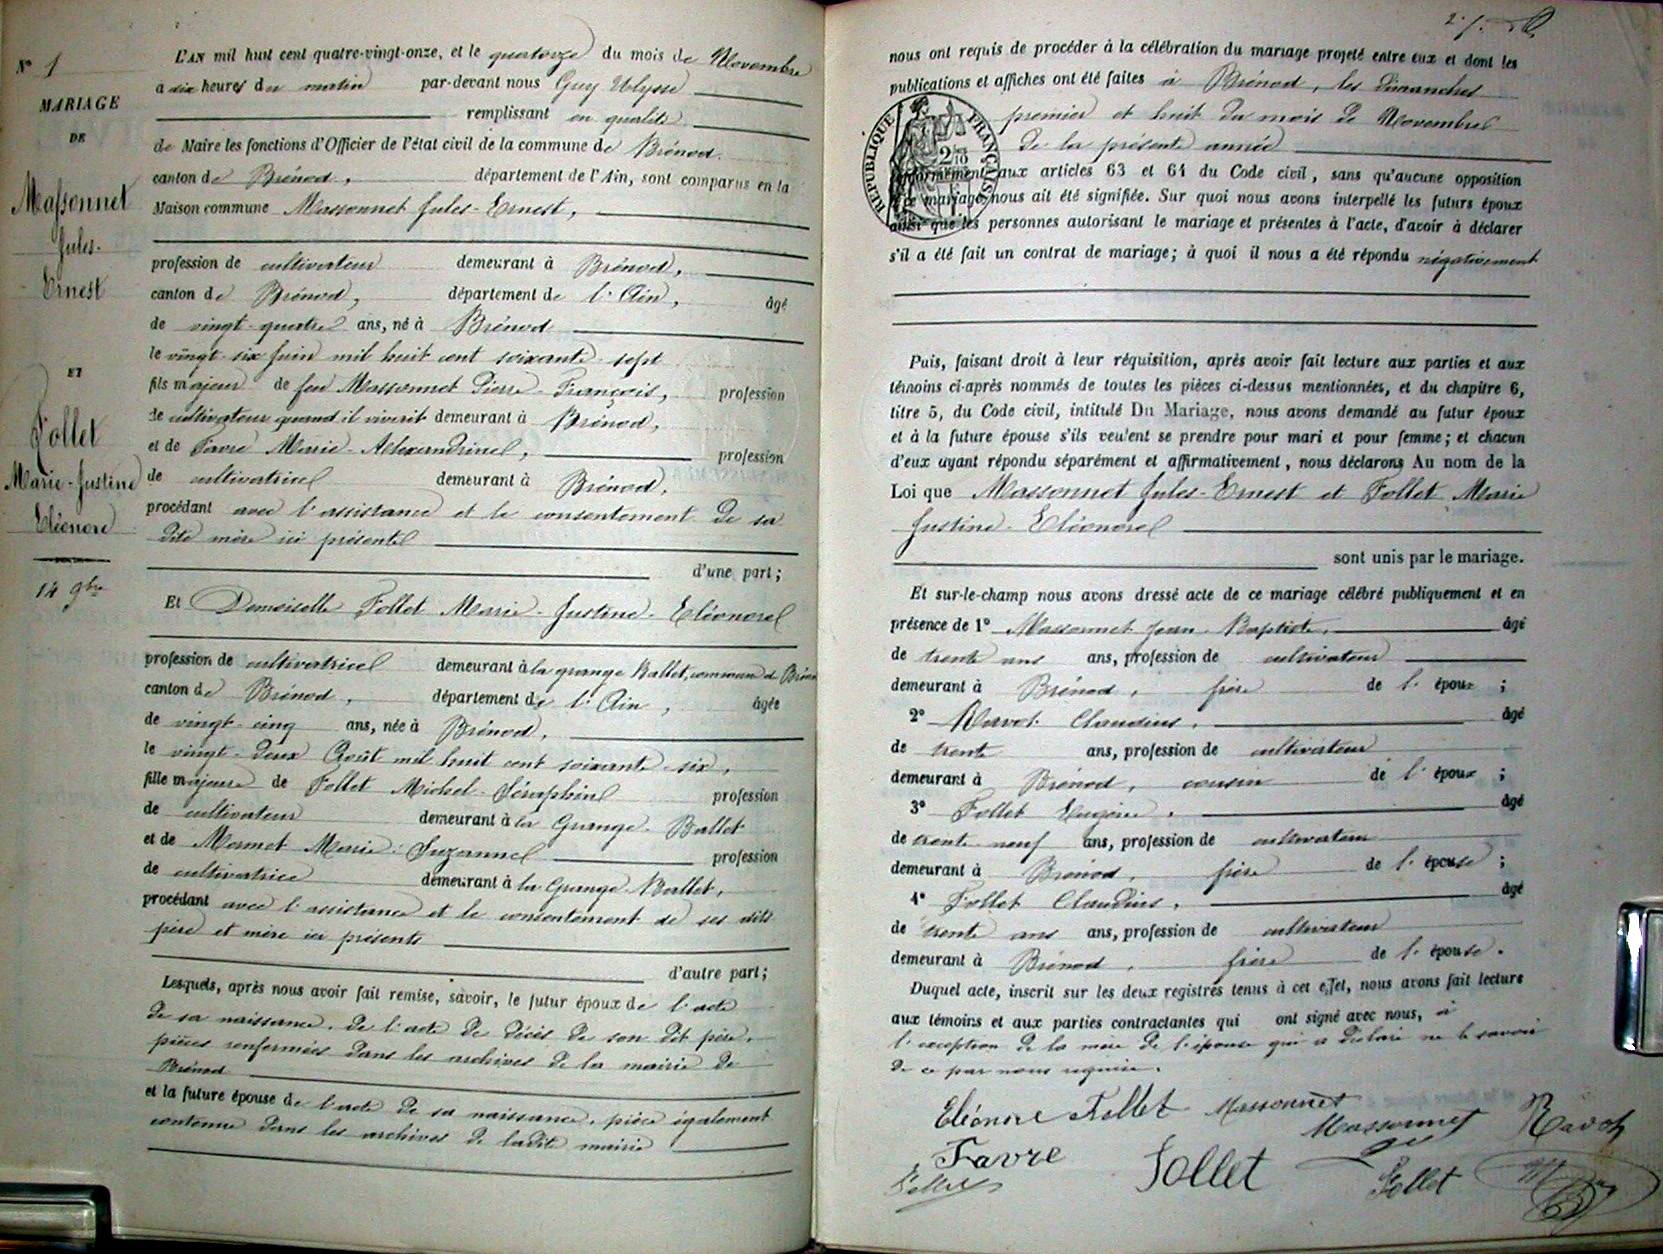 N° 1
MARIAGE
DE
Massonnet
Jules-
Ernest
ET
Follet
Marie-Justine
Eléonore
14 9bre
L'AN mil huit cent quatre-vingt-onze, et le quatorze du mois de Novembre
à dix heures du matin par-devant nous Guy Ulysse
remplissant en qualité
de Maire les fonctions d'Officier de l'état civil de la commune de Brénod
canton de Brénod, département de l'Ain, sont comparus en la
Maison commune Massonnet Jules-Ernest,
profession de cultivateur demeurant à Brénod,
canton de Brénod, département de l'Ain, âgé
de vingt-quatre ans, né à Brénod
le vingt-six Juin mil huit cent soixante-sept
fils majeur de feu Massonnet Pierre-François, profession
de cultivateur quand il vivait demeurant à Brénod,
et de Favre Marie-Alexandrine, profession
de cultivatrice demeurant à Brénod,
procédant avec l'assistance et le consentement de sa
dite mère ici présente
d'une part;
Et Demoiselle Follet Marie-Justine-Eléonore
profession de cultivatrice demeurant à la grange Ballet, commune de Brénod
canton de Brénod, département de l'Ain, âgée
de vingt-cinq ans, née à Brénod,
le vingt-deux Août mil huit cent soixante-six,
fille majeure de Follet Michel-Séraphin profession
de cultivateur demeurant à la Grange-Ballet
et de Mermet Marie-Suzanne profession
de cultivatrice demeurant à la Grange-Ballet,
procédant avec l'assistance et le consentement de ses dits
père et mère ici présents
d'autre part;
Lesquels, après nous avoir fait remise, savoir, le futur époux de l'acte
de sa naissance, de l'acte de décès de son dit père,
pièces renfermées dans les archives de la mairie de
Brénod
et la future épouse de l'acte de sa naissance, pièce également
contenue dans les archives de ladite mairie
nous ont requis de procéder à la célébration du mariage projeté entre eux et dont les
publications et affiches ont été faites à Brénod, les dimanches
premier et huit du mois de Novembre
de la présente année
conformément aux articles 63 et 64 du Code civil, sans qu'aucune opposition
à ce mariage nous ait été signifiée. Sur quoi nous avons interpellé les futurs époux
ainsi que les personnes autorisant le mariage et présentes à l'acte, d'avoir à déclarer
s'il a été fait un contrat de mariage; à quoi il nous a été répondu négativement
RÉPUBLIQUE FRANÇAISE
Puis, faisant droit à leur réquisition, après avoir fait lecture aux parties et aux
témoins ci-après nommés de toutes les pièces ci-dessus mentionnées, et du chapitre 6,
titre 5, du Code civil, intitulé Du Mariage, nous avons demandé au futur époux
et à la future épouse s'ils veulent se prendre pour mari et pour femme; et chacun
d'eux ayant répondu séparément et affirmativement, nous déclarons Au nom de la
Loi que Massonnet Jules-Ernest et Follet Marie
Justine-Eléonore
sont unis par le mariage.
Et sur-le-champ nous avons dressé acte de ce mariage célébré publiquement et en
présence de 1° Massonnet Jean-Baptiste, âgé
de trente ans ans, profession de cultivateur
demeurant à Brénod, frère de l'époux ;
2° Ravot Claudius, âgé
de trente ans, profession de cultivateur
demeurant à Brénod, cousin de l'époux ;
3° Follet Eugène, âgé
de trente-neuf ans, profession de cultivateur
demeurant à Brénod, frère de l'épouse ;
4° Follet Claudius, âgé
de trente ans ans, profession de cultivateur
demeurant à Brénod, frère de l'épouse.
Duquel acte, inscrit sur les deux registres tenus à cet effet, nous avons fait lecture
aux témoins et aux parties contractantes qui ont signé avec nous, à
l'exception de la mère de l'épouse qui a déclaré ne le savoir
de ce par nous requise.
Eléonore Follet Massonnet
Massonnet Ravot
Favre
Follet Follet Follet